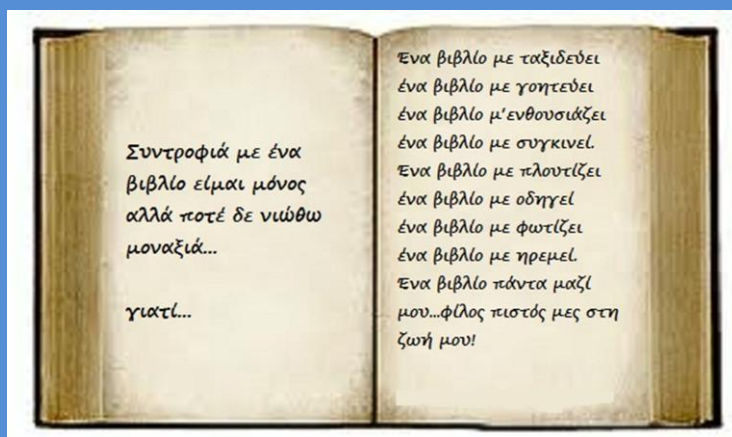 Συντροφιά με ένα
βιβλίο είμαι μόνος
αλλά ποτέ δε νιώθω
μοναξιά...
γιατί...
Ένα βιβλίο με ταξιδεύει
ένα βιβλίο με γοητεύει
ένα βιβλίο μ'ενθουσιάζει
ένα βιβλίο με συγκινεί.
Ένα βιβλίο με πλουτίζει
ένα βιβλίο με οδηγεί
ένα βιβλίο με φωτίζει
ένα βιβλίο με ηρεμεί.
Ένα βιβλίο πάντα μαζί
μου...φίλος πιστός μες στη
ζωή μου!